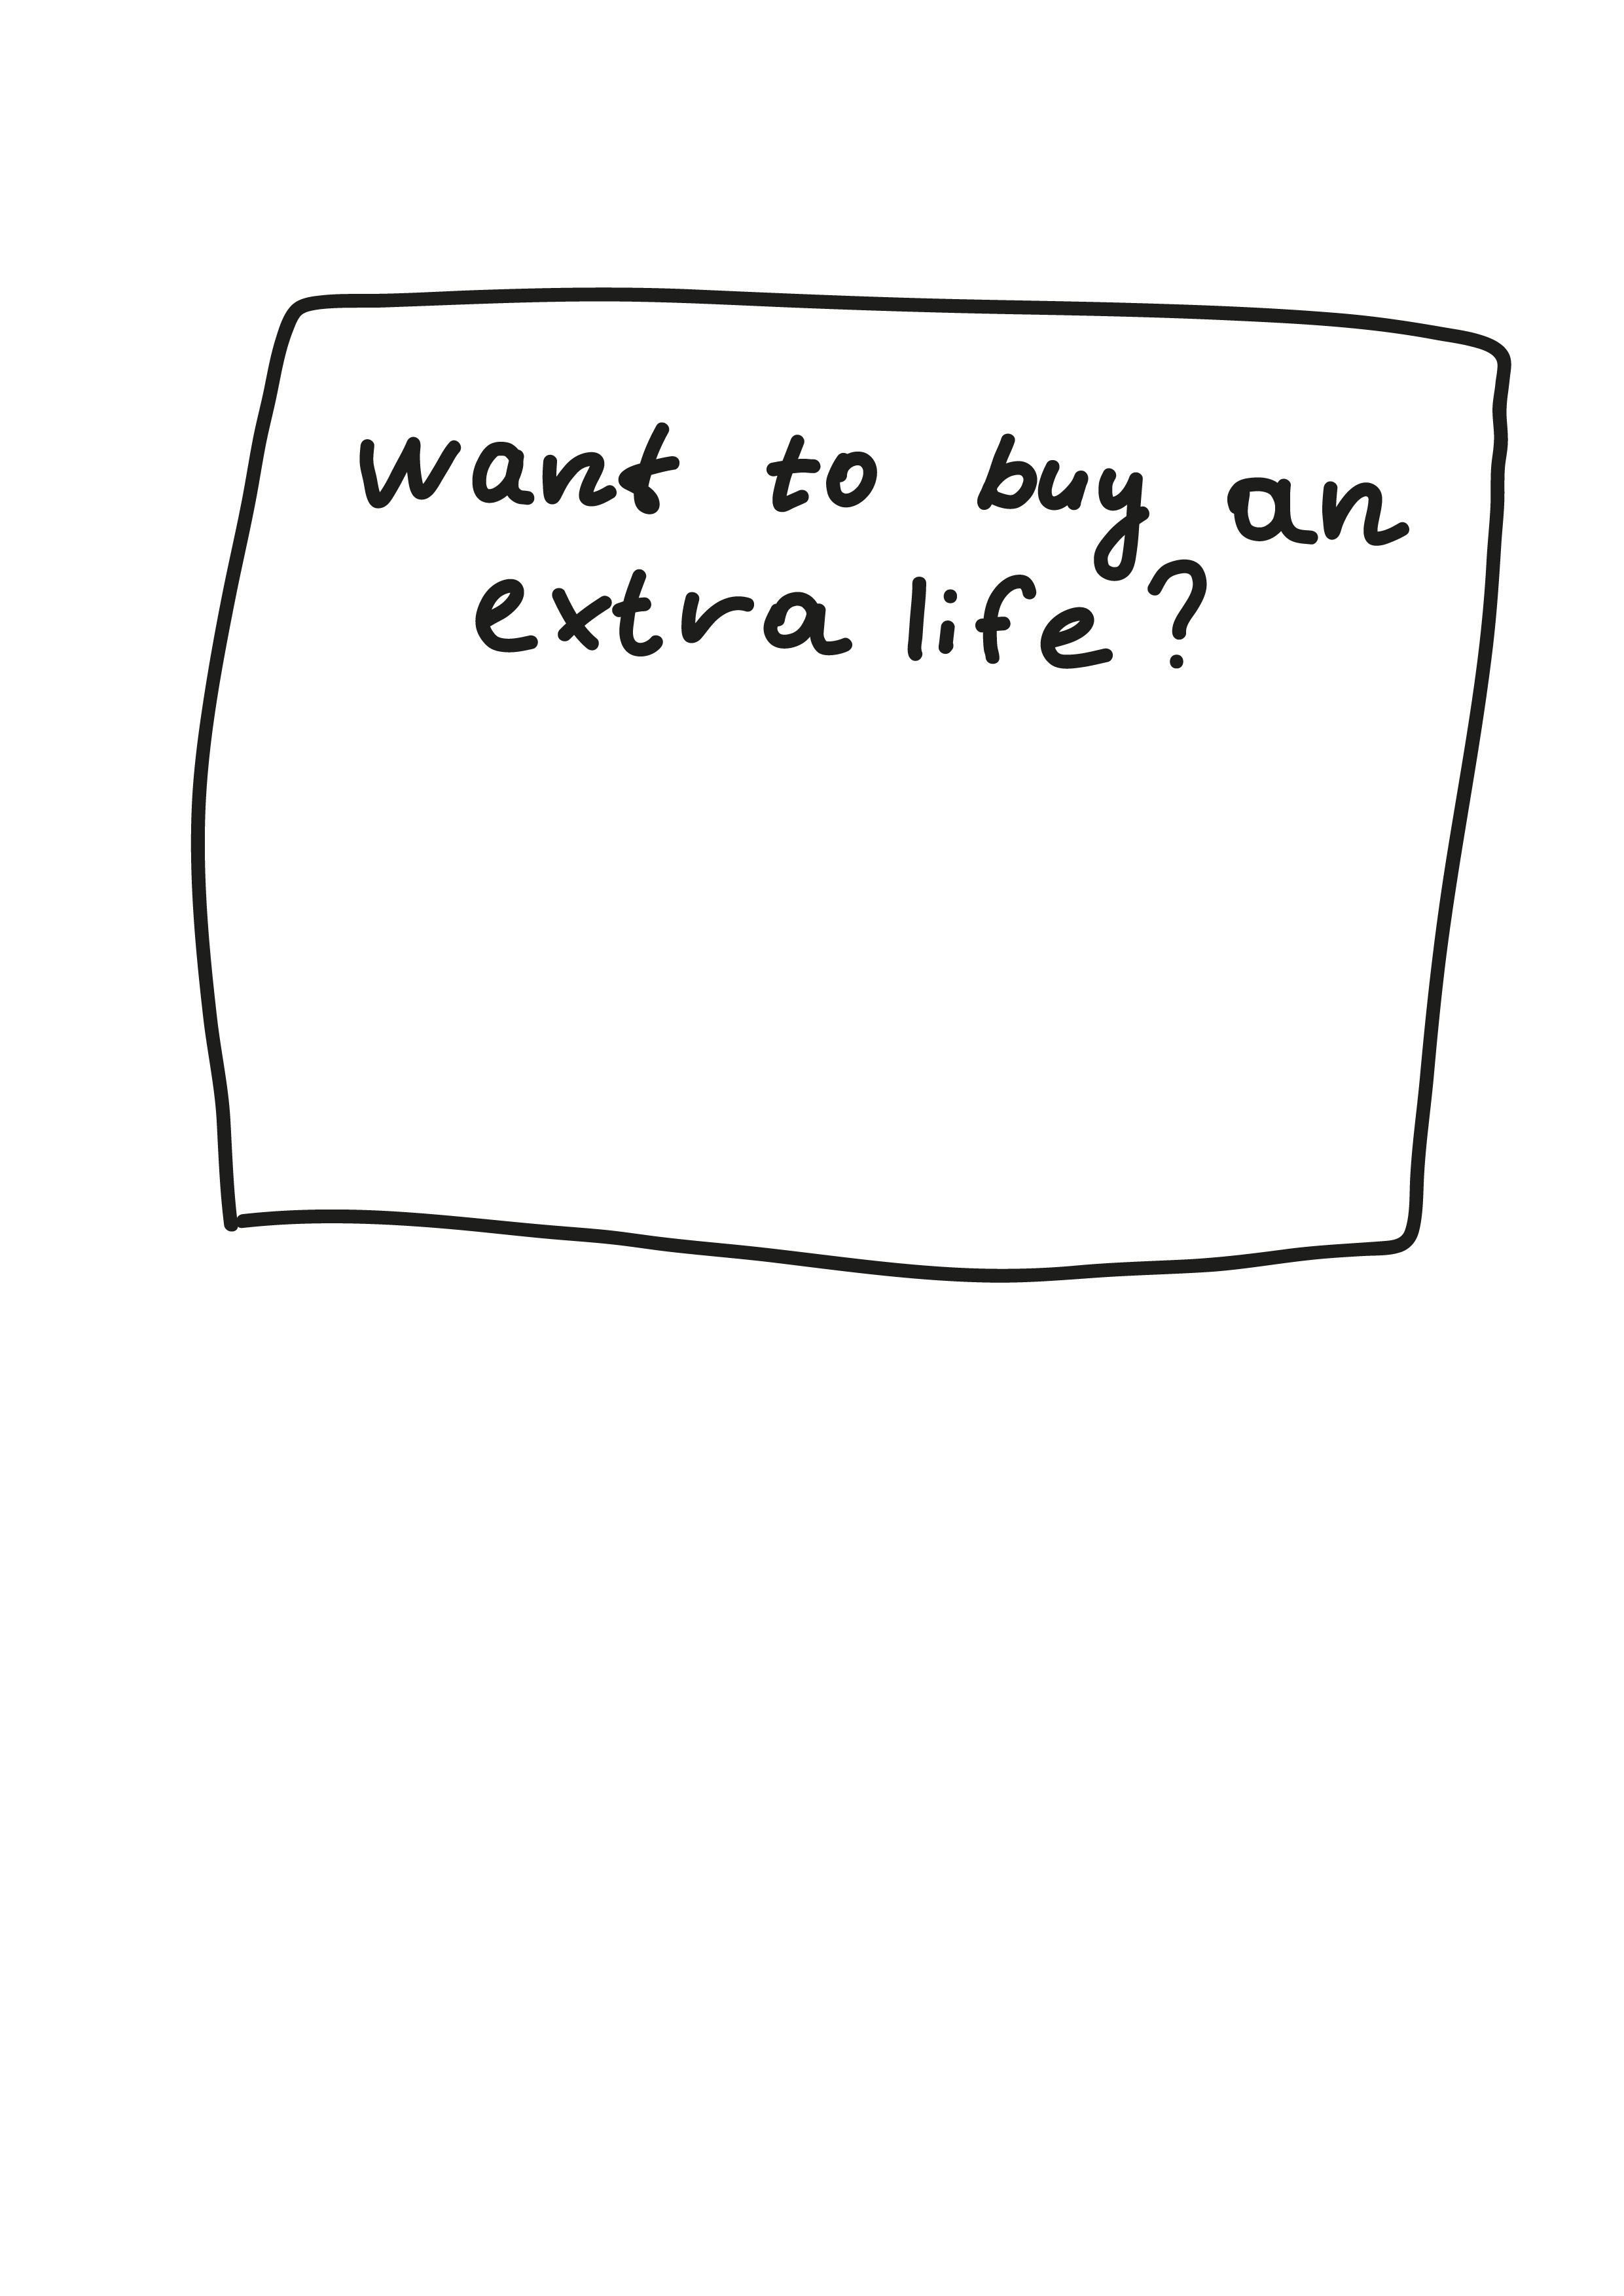 want to buy an
extra life?